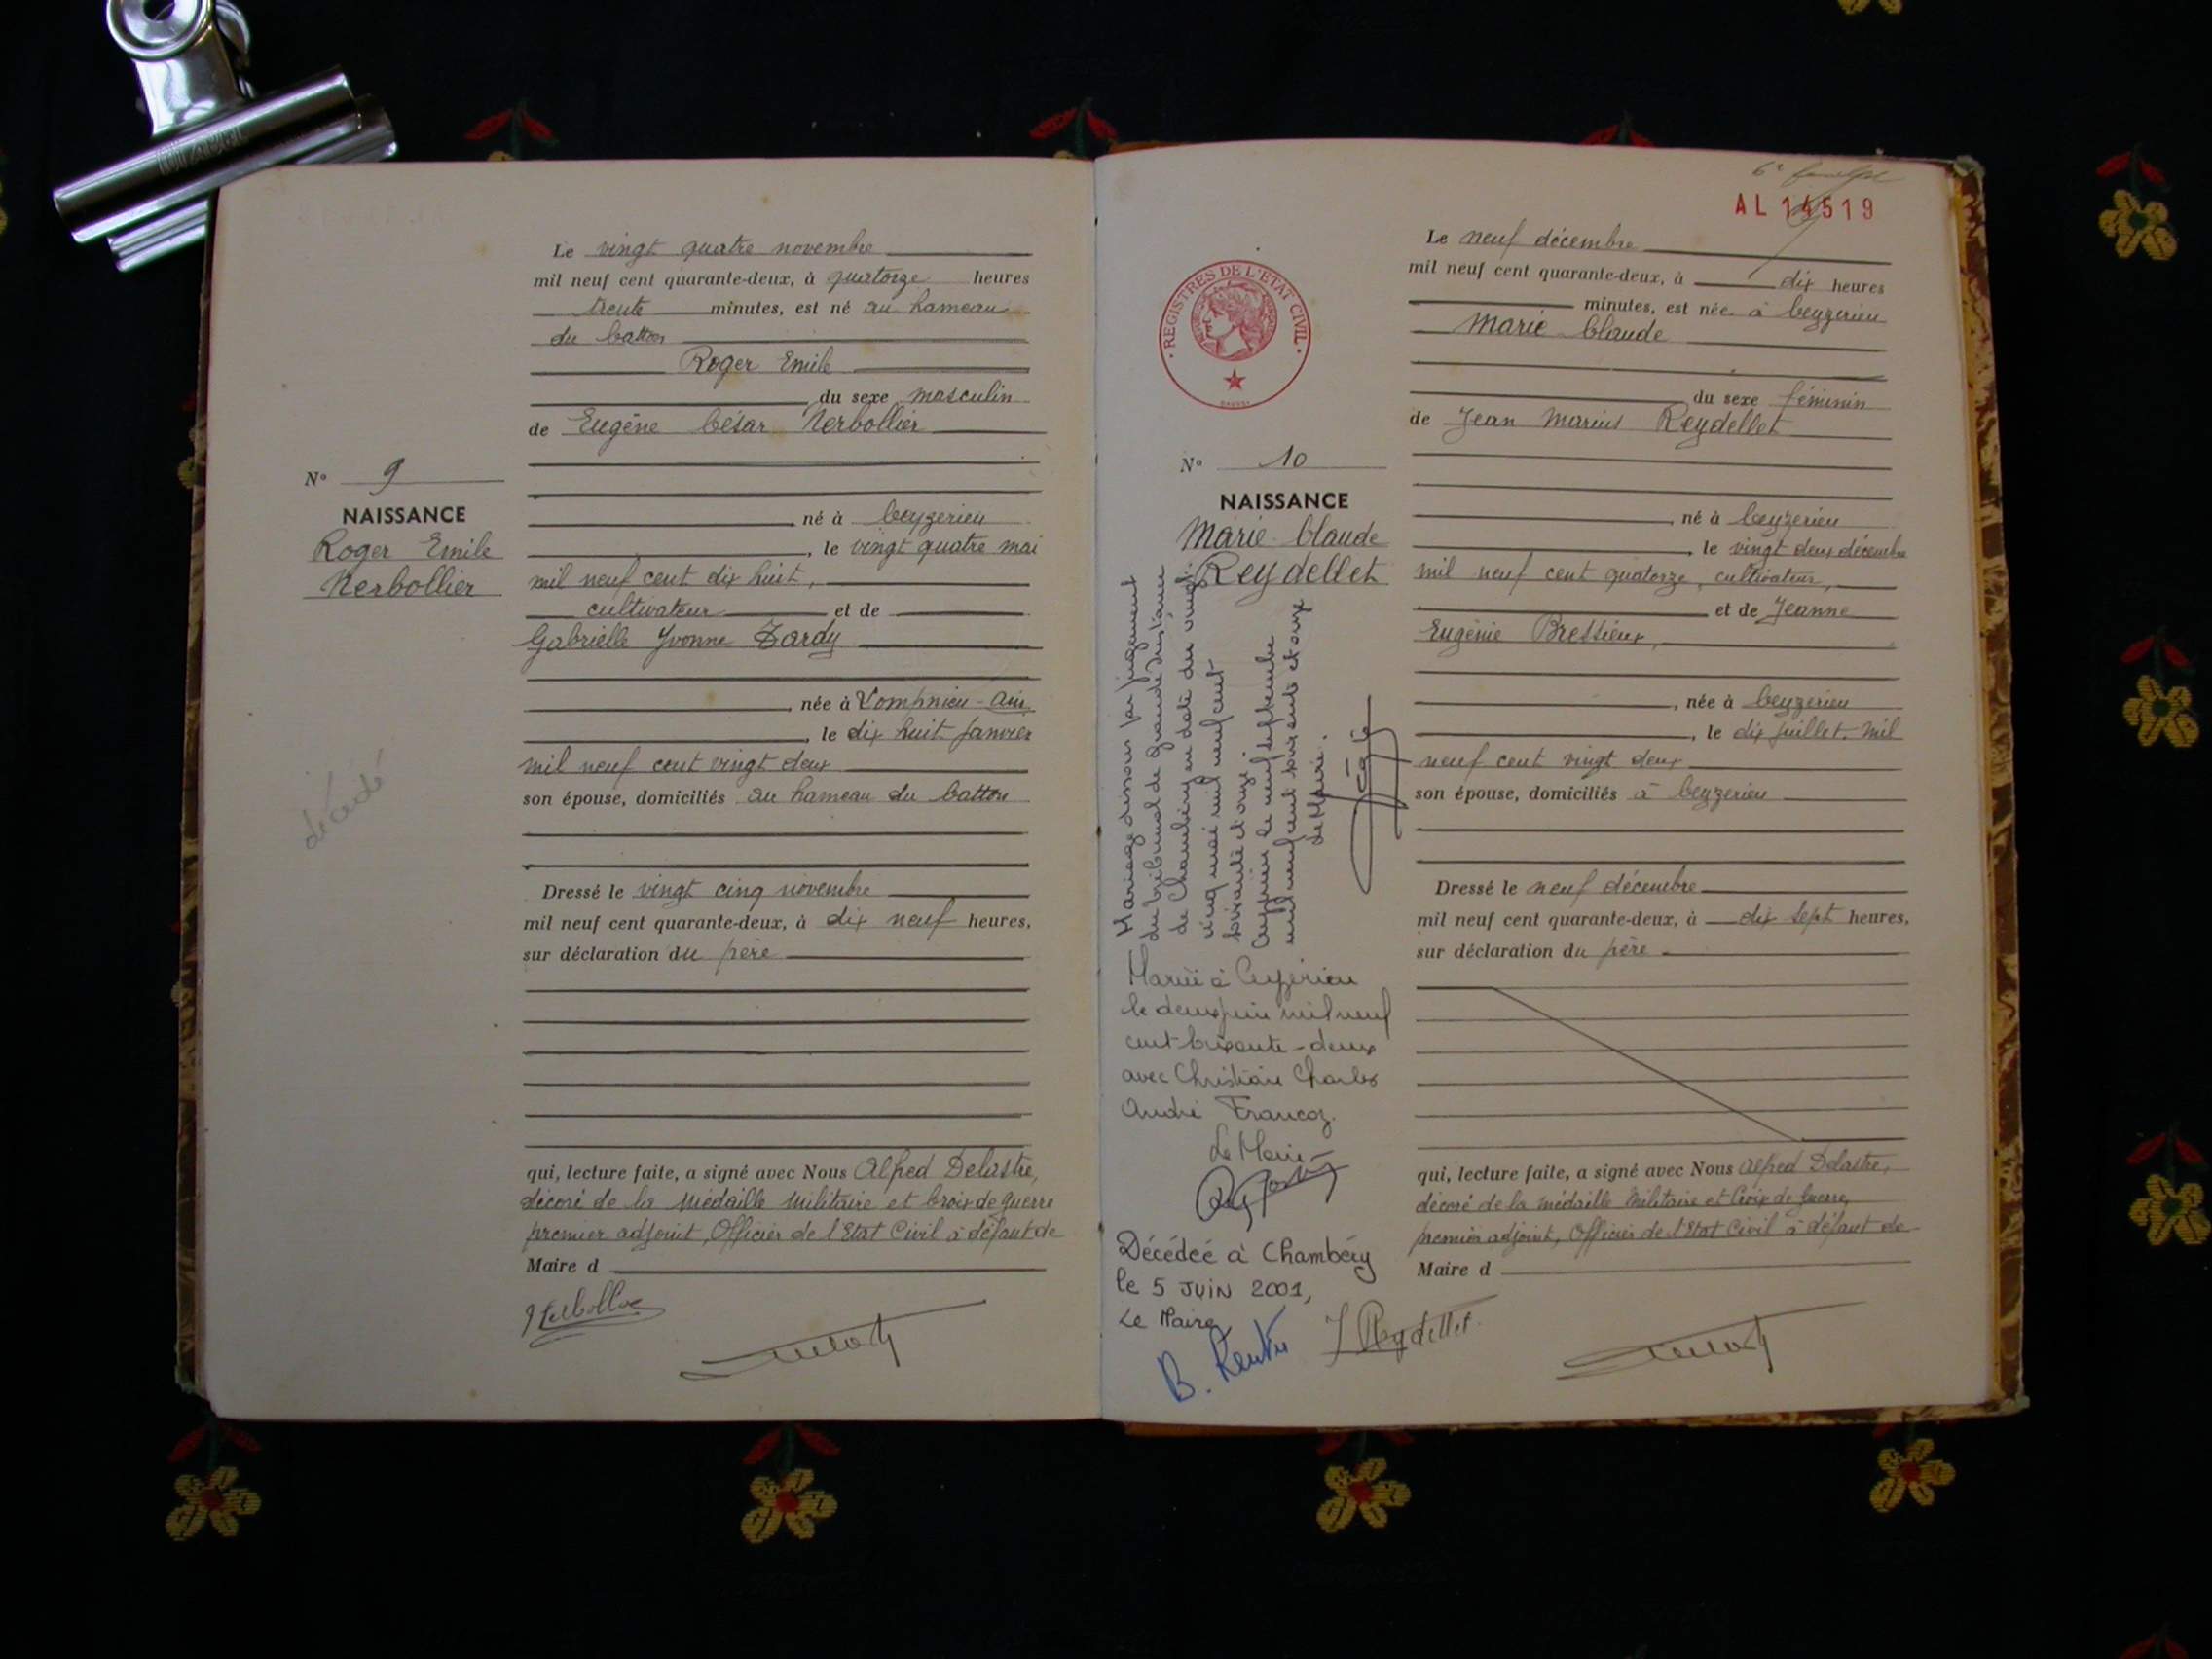 Le vingt quatre novembre
mil neuf cent quarante-deux, à quatorze heures
trente minutes, est né au hameau
du Catton
Roger Emile
du sexe masculin
de Eugène César Nerbollier
né à Ceyzerieu
, le vingt quatre mai
mil neuf cent dix huit,
cultivateur et de
Gabrielle Yvonne Tardy
, née à Pompnieu-Ain
, le dix huit janvier
mil neuf cent vingt deux
son épouse, domiciliés au hameau du Catton
Dressé le vingt cinq novembre
mil neuf cent quarante-deux, à dix neuf heures,
sur déclaration du père
qui, lecture faite, a signé avec Nous Alfred Delastre,
décoré de la médaille militaire et Croix de guerre
premier adjoint, Officier de l'Etat Civil à défaut de
Maire d
N° 9
NAISSANCE
Roger Emile
Nerbollier
décédé
AL 14519
REGISTRES DE L'ETAT CIVIL
N° 10
NAISSANCE
Marie Claude
Reydellet
Mariage dissous par jugement
du tribunal de grande instance
de Chambéry en date du vingt
cinq mai mil neuf cent
soixante et onze.
Ceyzérieu le neuf septembre
mil neuf cent soixante et onze
Le Maire.
Mariée à Ceyzérieu
le deux juin mil neuf
cent soixante-deux
avec Christian Charles
André Francoz.
Le Maire
Décédée à Chambéry
le 5 JUIN 2001,
Le Maire
J Reydellet
Le neuf décembre
mil neuf cent quarante-deux, à dix heures
minutes, est née à Ceyzerieu
Marie Claude
du sexe féminin
de Jean Marius Reydellet
, né à Ceyzerieu
, le vingt deux décembre
mil neuf cent quatorze, cultivateur,
et de Jeanne
Eugénie Bressieux,
, née à Ceyzerieu
, le dix juillet mil
neuf cent vingt deux
son épouse, domiciliés à Ceyzerieu
Dressé le neuf décembre
mil neuf cent quarante-deux, à dix sept heures,
sur déclaration du père
qui, lecture faite, a signé avec Nous Alfred Delastre,
décoré de la médaille militaire et Croix de Guerre,
premier adjoint, Officier de l'Etat Civil à défaut de
Maire d